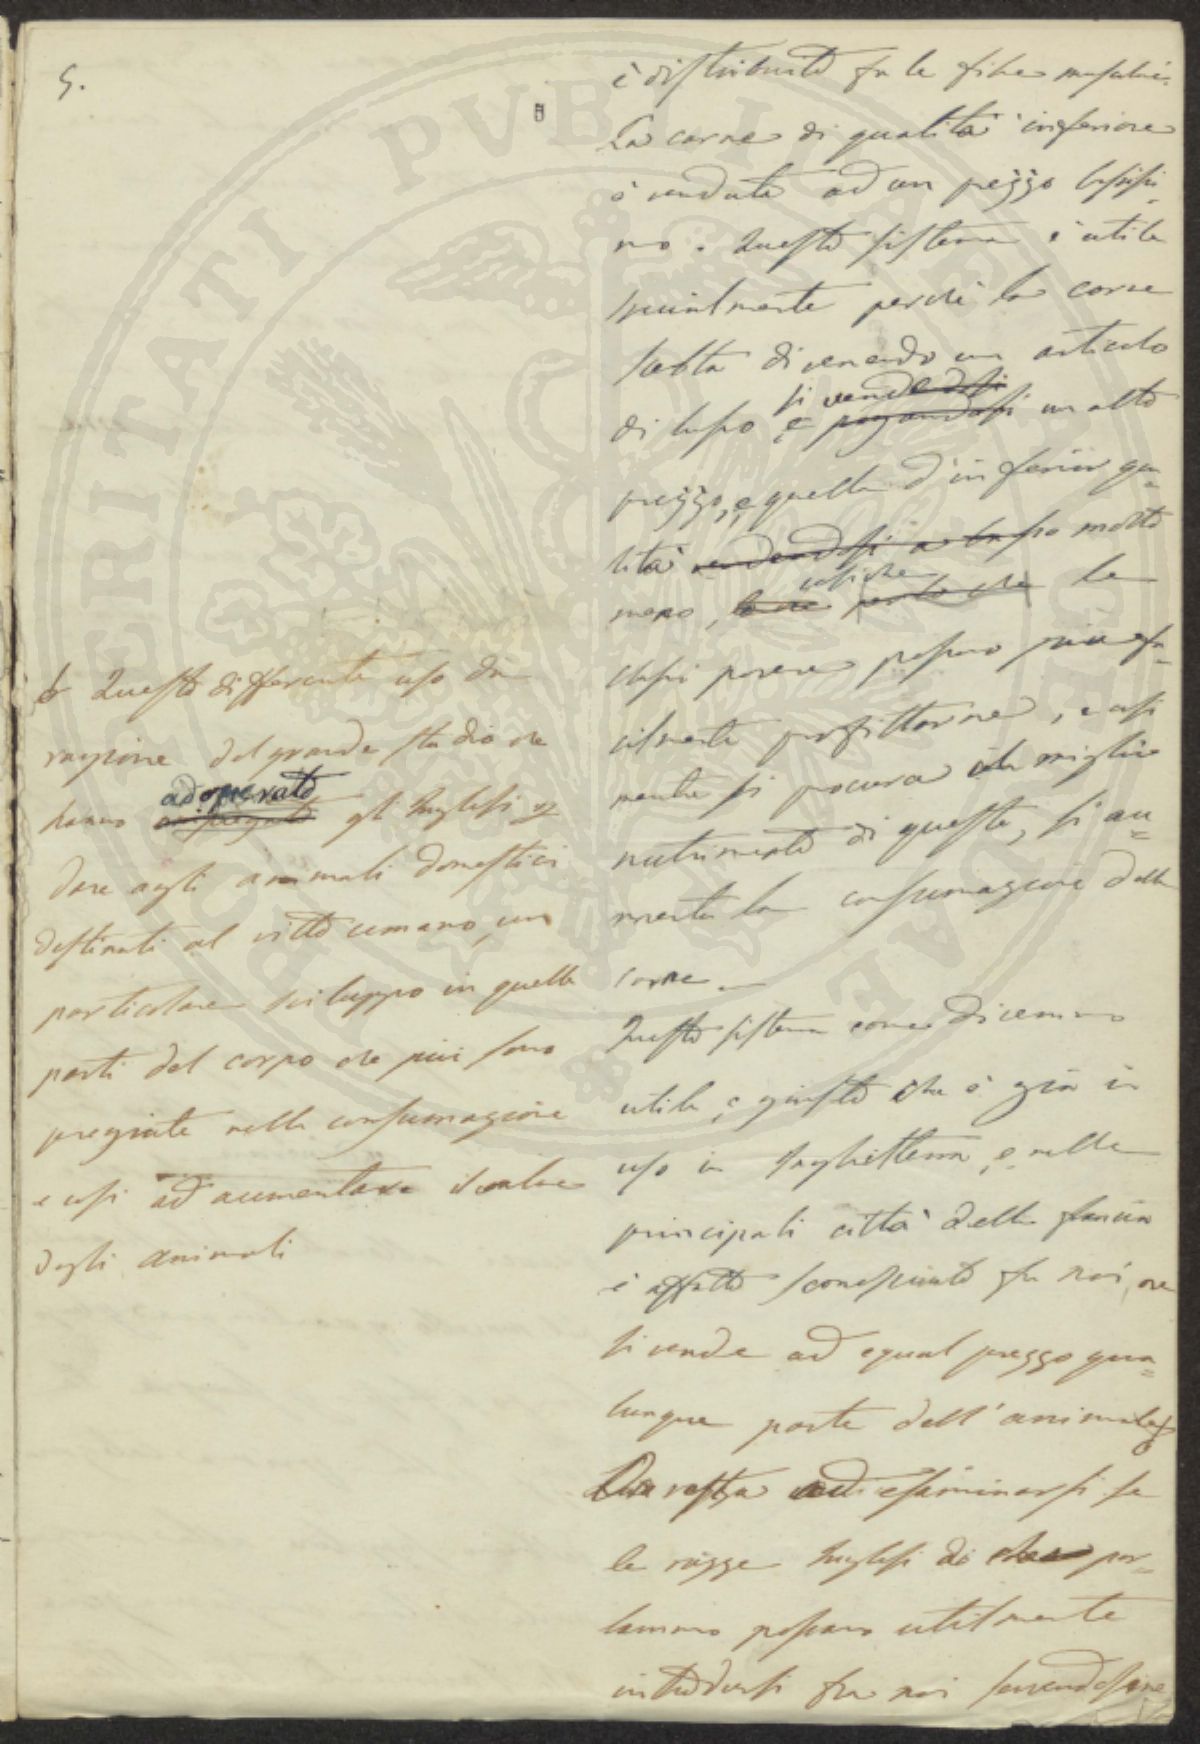 5.
è distribuito fra le fibre muscolari.
La carne di qualità inferiore
è venduta ad un prezzo bassissi-
mo. Questo sistema è utile
specialmente perchè la carne
scelta divenendo un articolo
si vende
di lusso e pagandosi un alto
prezzo, e quella d'inferior qua-
lità vendendosi a basso molto
meno, cosicchè le
classi povere possono più fa-
cilmente profittarne, e così
mentre si procura un miglior
nutrimento di queste, si au-
menta la consumazione della
carne.
Questo sistema come dicemmo
utile, e giusto che è già in
uso in Inghilterra, e nelle
principali città della Francia
è affatto sconosciuto fra noi, ove
si vende ad egual prezzo qua-
lunque parte dell'animale
Ora resta ad esaminarsi se
le razze Inglesi di che par-
lammo possano utilmente
introdursi fra noi servendosene
Questo differente uso dà
ragione del grande studio che
adoperato
hanno impiegato gli Inglesi per
dare agli animali domestici
destinati al vitto umano, uno
particolare sviluppo in quelle
parti del corpo che più sono
pregiate nella consumazione
e così ad aumentare il valore
degli animali
PVBLICAE
VERITATI